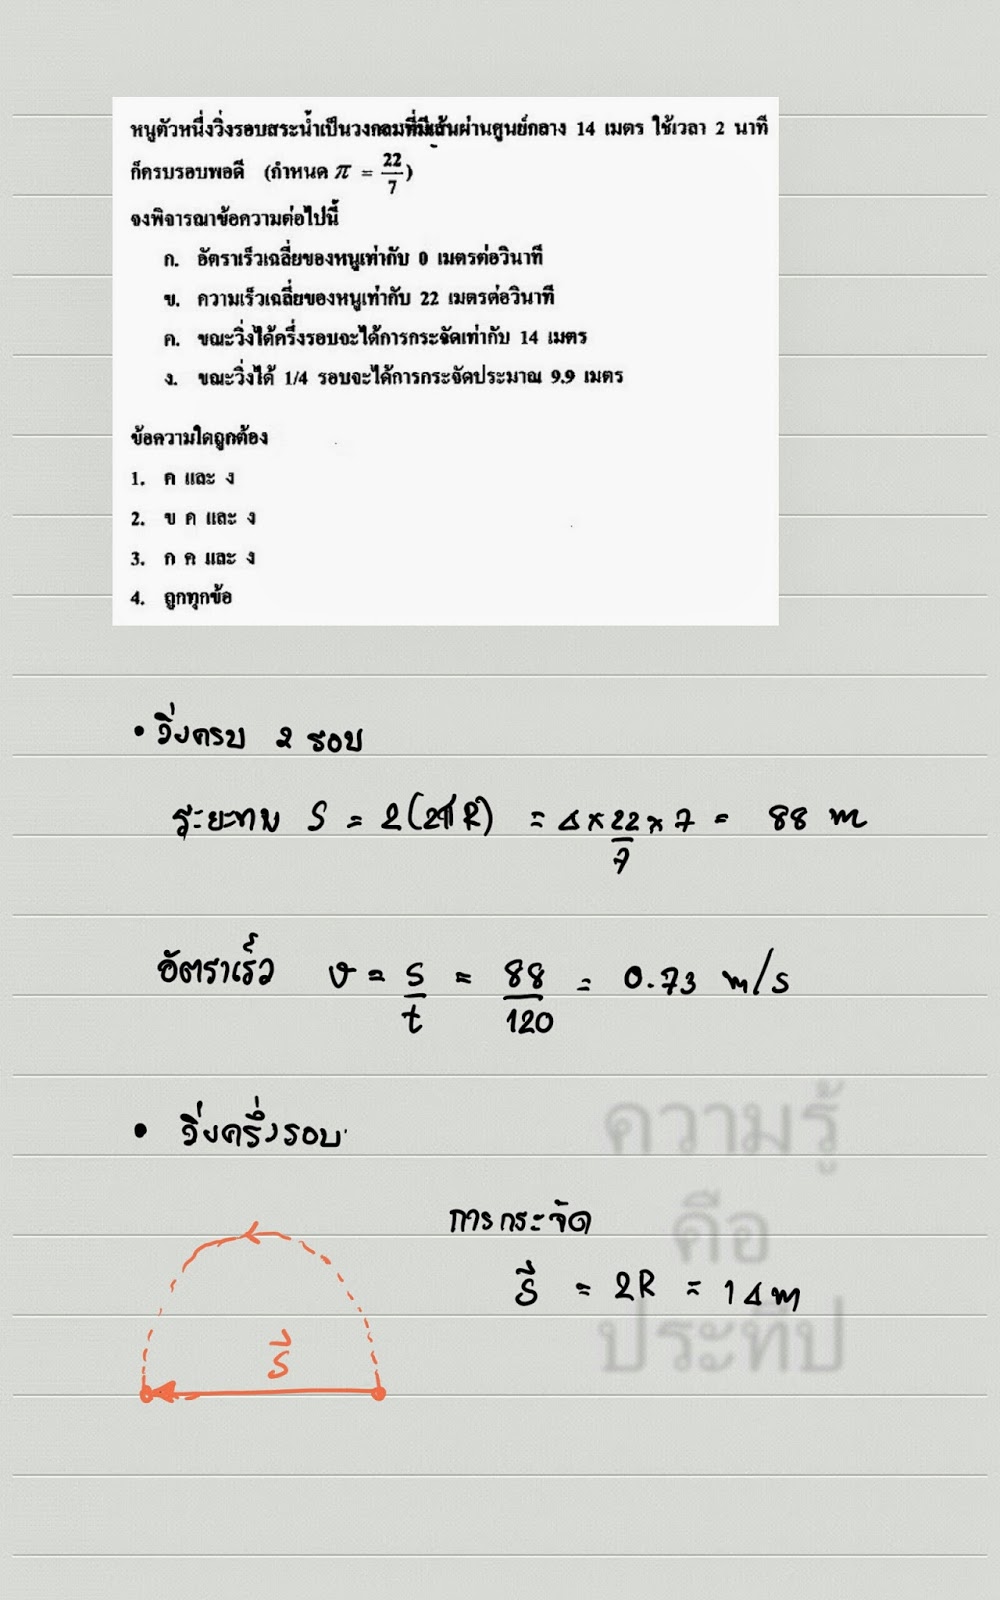 หนูตัวหนึ่งวิ่งรอบสระน้ำเป็นวงกลมที่มีเส้นผ่านศูนย์กลาง 14 เมตร ใช้เวลา 2 นาที
ก็ครบรอบพอดี (กำหนด π = 22/7)
จงพิจารณาข้อความต่อไปนี้
ก. อัตราเร็วเฉลี่ยของหนูเท่ากับ 0 เมตรต่อวินาที
ข. ความเร็วเฉลี่ยของหนูเท่ากับ 22 เมตรต่อวินาที
ค. ขณะวิ่งได้ครึ่งรอบจะได้การกระจัดเท่ากับ 14 เมตร
ง. ขณะวิ่งได้ 1/4 รอบจะได้การกระจัดประมาณ 9.9 เมตร
ข้อความใดถูกต้อง
1. ค และ ง
2. ข ค และ ง
3. ก ค และ ง
4. ถูกทุกข้อ
• วิ่งครบ 2 รอบ
ระยะทาง S = 2(2πR) = 4 × 22/7 × 7 = 88 m
อัตราเร็ว v = s/t = 88/120 = 0.73 m/s
• วิ่งครึ่งรอบ
ความรู้
การกระจัด
คือ
S⃗ = 2R = 14 m
ประทีป
S⃗